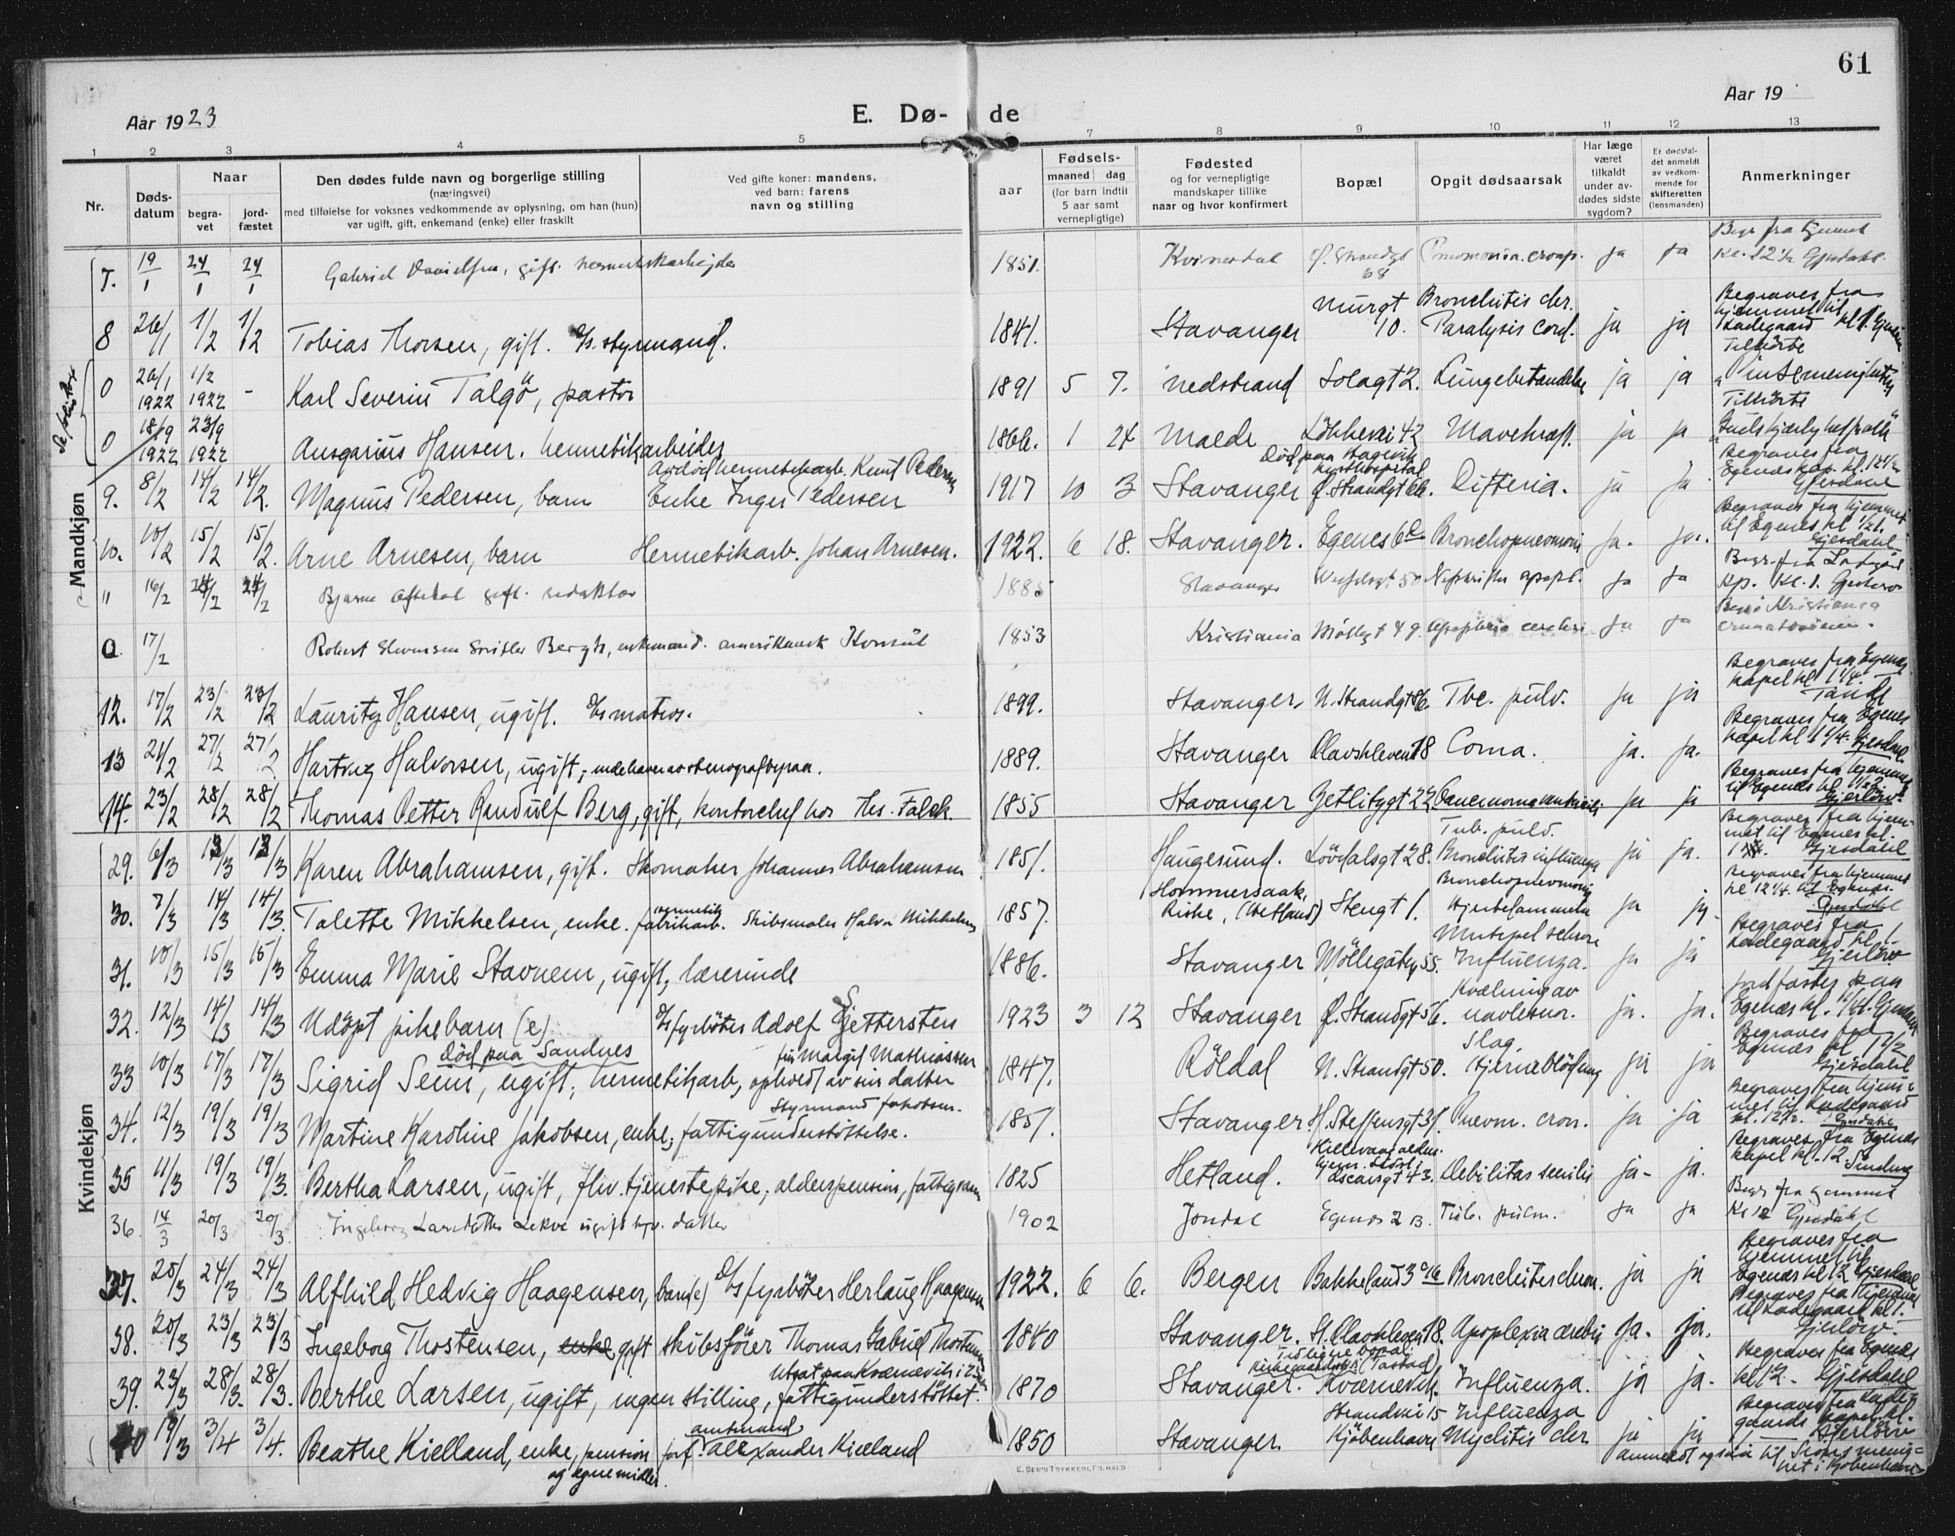 61
Aar 1923
E. Dø-
de
Aar 19
1 2 3 4 5 7 8 9 10 11 12 13
Nr.
Døds-
datum
Naar
begra-
vet
jord-
fæstet
Den dødes fulde navn og borgerlige stilling
(næringsvei)
med tilføielse for voksnes vedkommende av oplysning, om han (hun)
var ugift, gift, enkemand (enke) eller fraskilt
Ved gifte koner: mandens,
ved barn: farens
navn og stilling
aar
Fødsels-
maaned dag
(for barn indtil
5 aar samt
vernepligtige)
Fødested
og for vernepligtige
mandskaper tillike
naar og hvor konfirmert
Bopæl
Opgit dødsaarsak
Har læge
været
tilkaldt
under av-
dødes sidste
sygdom?
Er dødsfal-
det anmeldt
av vedkom-
mende for
skifteretten
(lensmanden)
Anmerkninger
Mandkjøn
7. 19/1 24/1 24/1 Gabriel Danielsen, gift. 1851. Kvinesdal Ø. Strandgt 68 ja ja Begr. fra hjemmet Kl. 12½ Gjesdahl.
8 26/1 1/2 1/2 Tobias Thorsen, gift. Fs. styrmand. 1841. Stavanger Murgt 10. Bronchitis chr. Paralysis cord. ja ja Begraves fra hjemmet til Ladegaard kl 1.
0 26/1 1922 1/2 1922 - Karl Severin Talgö, pastor 1891 5 7. Nedstrand Solagt 2. Lungebetændelse ja ja Tilhørte
0 18/9 1922 23/9 1922 Ansgarius Hansen. hermetikarbeider 1866. 1 24 Løkkevei 42 Mavekræft. ja ja Tilhørte
9. 8/2 14/2 14/2. Magnus Pedersen, barn Avdød hermetikarb. Knut Pedersen Enke Inger Pedersen 1917 10 3 Stavanger Død paa Ø. Strandgt 66. Difteria. ja ja Begraves fra Egenes kap. kl. 12½ Gjesdahl
10. 10/2 15/2 15/2. Arne Arnesen, barn Hermetikarb. Johan Arnesen. 1922. 6 18. Stavanger. Egenes 6 Bronchopnevmoni ja. ja. Begraves fra hjemmet til Egenes kl Gjesdahl
" 16/2 24/2 24/2 Bjarne gift. redaktør 1885 Stavanger ja ja Begr. fra Kl. 1.
0. 17/2 Robert Bergh, enkemand. amerikansk Konsul 1853 Kristiania Møllegt 49. ja ja Kristiania
12. 17/2 23/2 23/2 Lauritz Hansen, ugift. Fs matros. 1899. Stavanger, N. Strandgt 86. Tbc. pulv. ja ja Begraves fra Egenes kapel kl 1¼.
13 21/2 27/2 27/2 Hartvig Halvorsen, ugift, indehaver av stenografbyraa. 1889. Stavanger Olavskleven 18 Coma. ja. ja. Begraves fra Egenes kapel kl 1¼. Gjesdahl.
14. 23/2 28/2 28/2 Thomas Petter Randulf Berg, gift, kontorchef hos Ths. Falck. 1855 Stavanger Jetlitzgt 22 ja ja Begraves fra hjemmet til Egenes kl
Kvindekjøn
29. 6/3 13/3 13/3 Karen Abrahamsen, gift. Skomaker Johannes Abrahamsen 1851. Haugesund. Lövdalsgt 28. Tub. pulv. Bronchitis influenza ja ja. Begraves fra hjemmet til Egenes kl. Gjesdahl
30. 7/3 14/3 14/3. Talette Mikkelsen, enke. hermetik fabrikarb. Skibsmaler Halvor Mikkelsen 1857. Hommersaak, Riske, (Hetland) Stengt 1. Bronchopnevmoni Hjertelammelse ja ja. Begraves fra hjemmet kl 12¼ til Egenes. Gjesdahl
31. 10/3 15/3 15/3 Emma Marie Stavnem, ugift, lærerinde 1886. Stavanger Möllegaten 55. Influenza. ja ja Begraves fra Ladegaard kl 1.
32. 12/3 14/3 14/3 Udöpt pikebarn (e) Fs fyrböter Adolf Gjettersten 1923 3 12 Stavanger Ø. Strandgt 56. Kvælning av navlesnor. ja. ja. jordfæstes paa Egenæs kl.
33 10/3 17/3 17/3 Sigrid Seim, ugift, Död paa Sandnes hermetikarb, ophold av sin datter fru Margit Mathiassen 1847. Röldal N. Strandgt 50. Slag. Hjerneblödning ja ja Begraves fra Egenæs kl 1½ Gjesdahl
34. 12/3 19/3 19/3 Martine Karoline Jakobsen, enke, fattigunderstöttelse. Styrmand Jakobsen. 1851. Stavanger H. Steffensgt 31. Pnevm. cron. ja ja Begraves fra hjemmet til Ladegaard kl. 12½. Gjesdahl
35 11/3 19/3 19/3. Bertha Larsen, ugift, fhv. tjenestepike, alderspension, 1825 Hetland. Oscarsgt 43. Debilitas senilis ja. ja. Begraves fra Egenæs kapel kl. 12 Sinding
36. 14/3 20/3 20/3 Ingeborg Larsdatter Lekve ugift datter 1902 Jondal Egenes 2 B. Tub. pulm. ja ja Begr. fra hjemmet Kl 12 Gjesdahl
37. 20/3 24/3 24/3 Alfhild Hedvig Haagensen, barn(e) Fs fyrböter Herlaug Haagensen 1922. 6 6. Bergen Bakkeland 3 Bronchitis chron. ja ja Begraves fra hjemmet til Egenæs kl 12 Gjesdahl
38. 20/3 23/3 23/3 Ingeborg Thostensen, enke gift skibsförer Thomas Gabriel Thostensen 1840 Stavanger. St. Olavskleven 18. Apoplexia cerebri ja. ja. Begraves fra hjemmet til Ladegaard kl 1.
39. 23/3 28/3. 28/3. Berthe Larsen, ugift, ingen stilling, fattigunderstöttet. 1870 Stavanger. Tidligere bopæl Kværnevik. Influenza. ja ja. Begraves fra Egenes kl 12. Gjesdahl
40 19/3 3/4 3/4. Beathe Kielland, enke, pension og egne midler. forh. amtmand Alexander Kielland 1850 Stavanger. Strandvei 15 Kjöbenhavn Influenza Myelitis chr ja ja Begraves fra Ladegaards kapel kl.
E. SEM'S TRYKKERI, FR.HALD